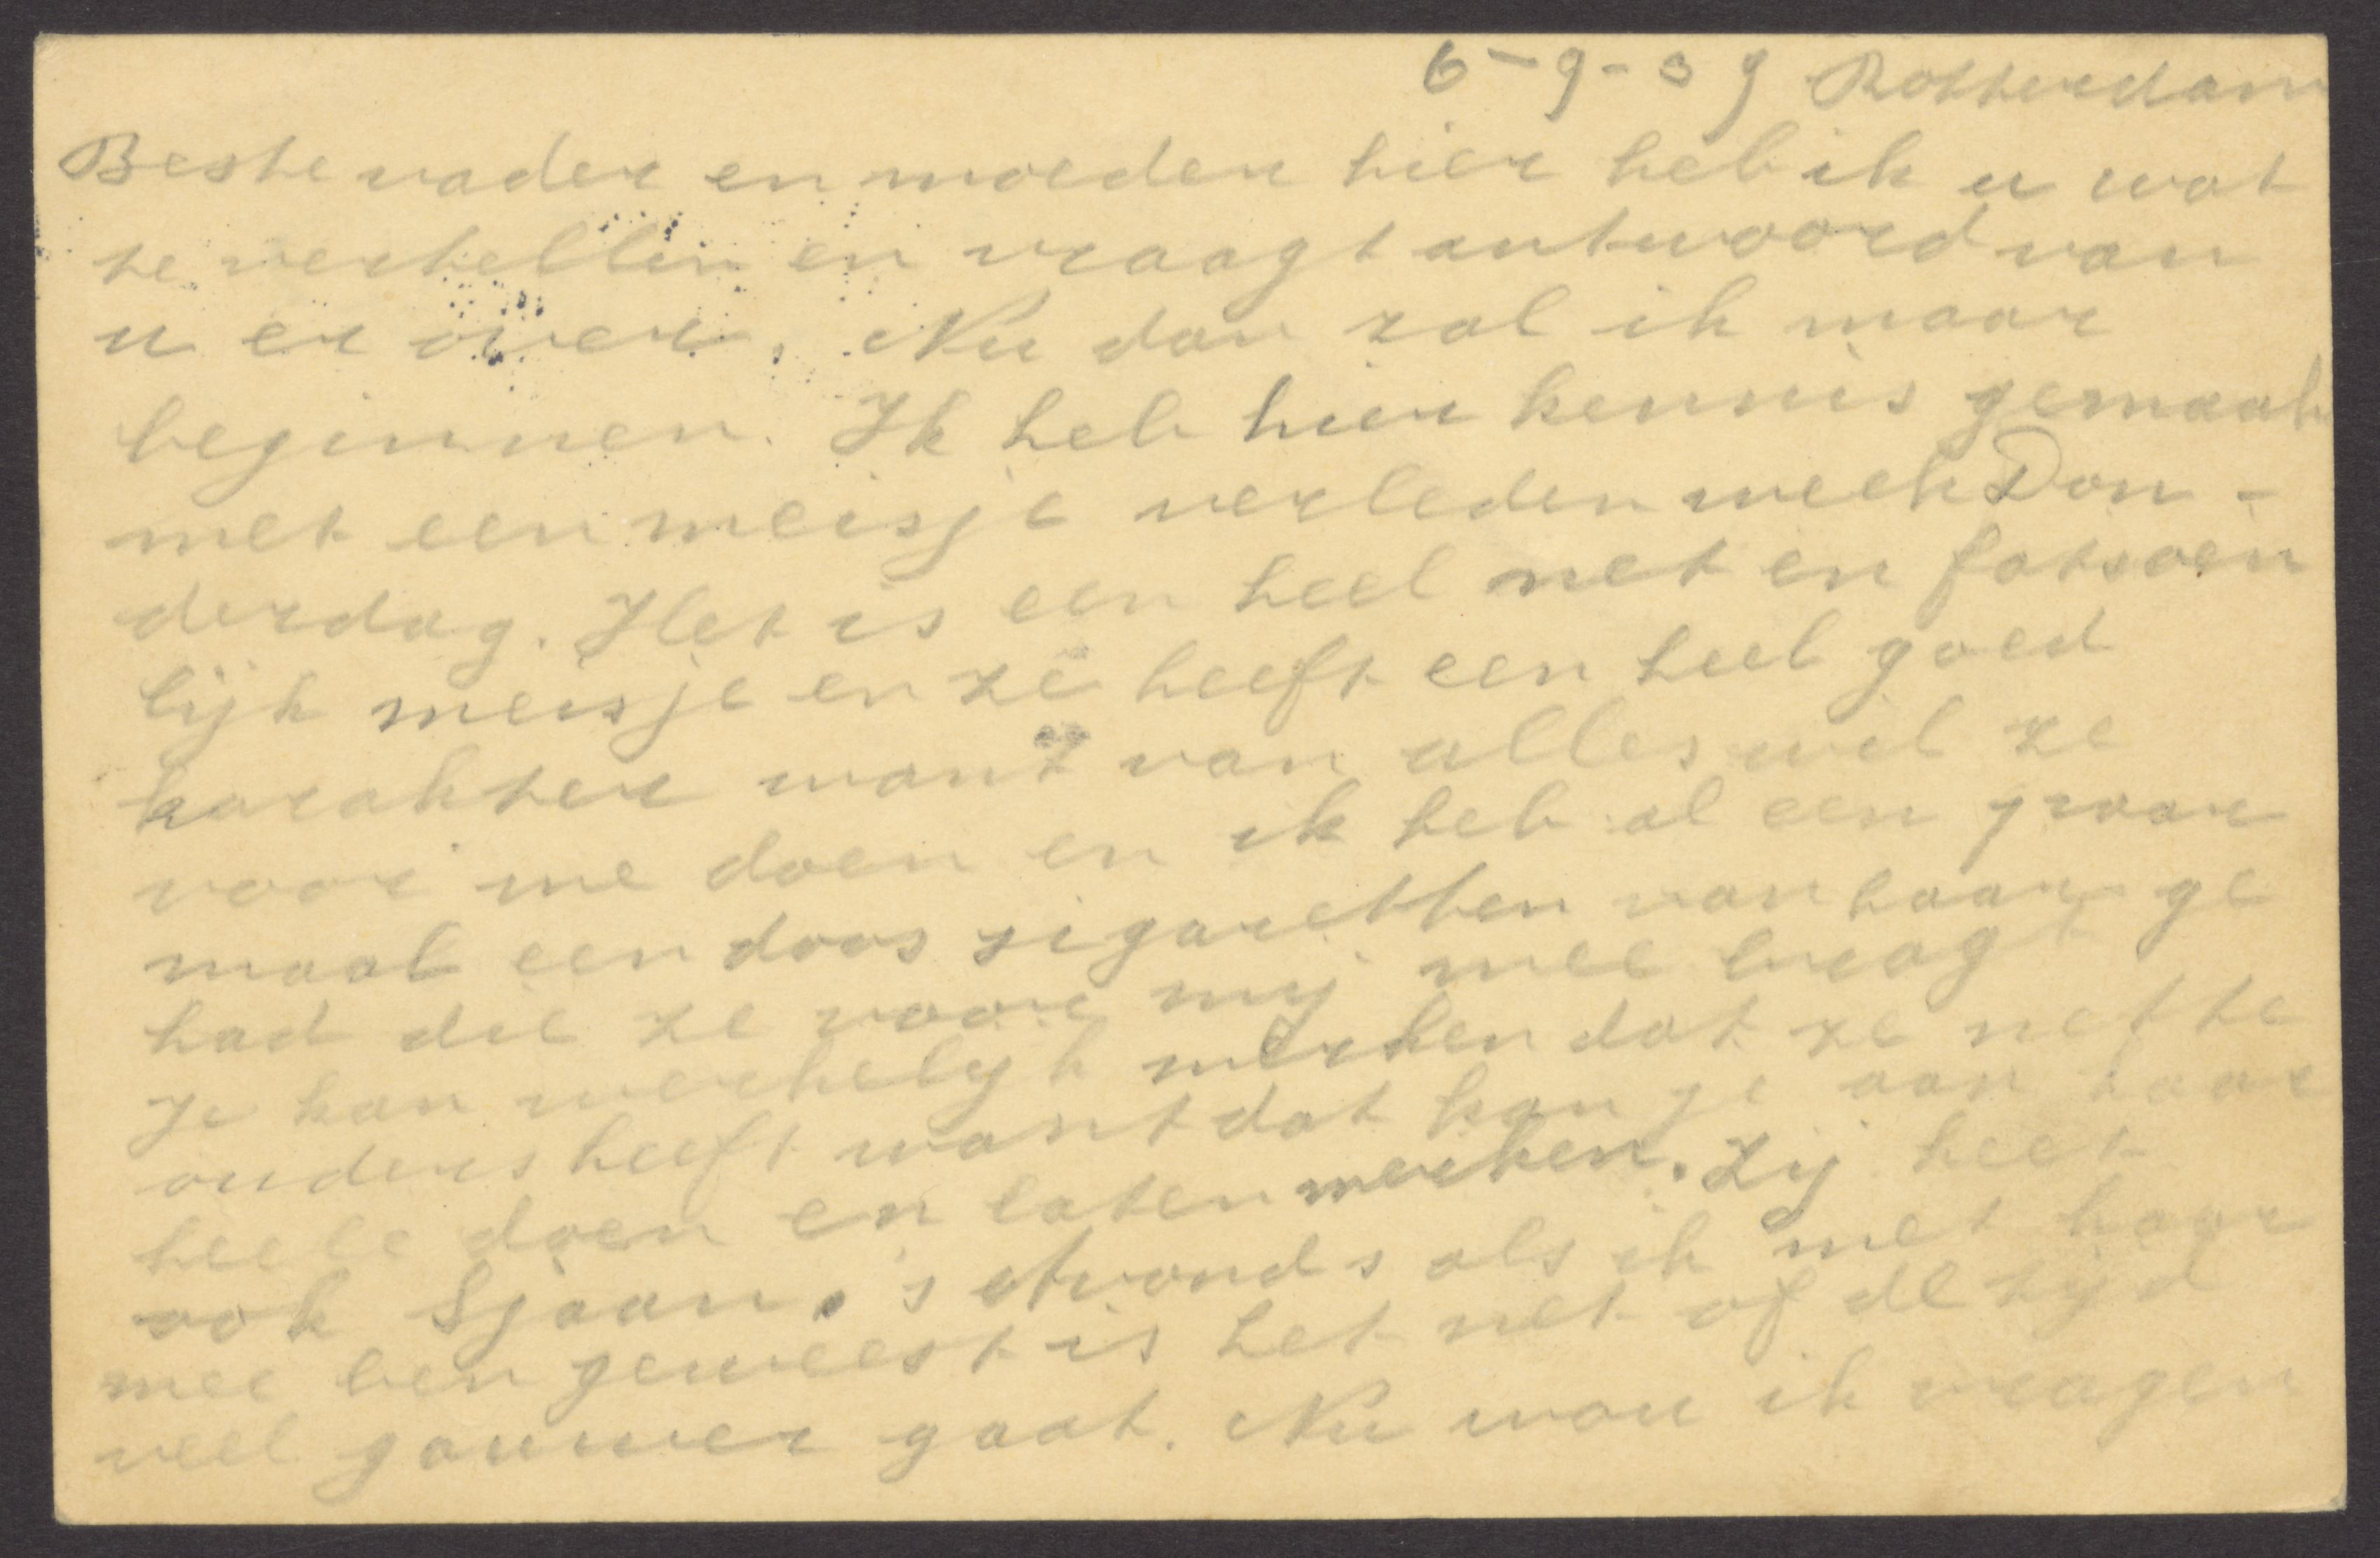 6-9-39 Rotterdam
Beste vader en moeder hier heb ik u wat
te vertellen en vraagt antwoord van
u er over. Nu dan zal ik maar
beginnen. Ik heb hier kennis gemaak
met een meisje verleden week Don-
derdag. Het is een heel net en fatsoen
lijk meisje en ze heeft een heel goed
karakter want van alles wil ze
voor me doen en ik heb al een paar
maal een doos sigaretten van haar ge
had die ze voor mij mee bragt
Je kan werkelijk merken dat ze nette
ouders heeft want dat kan je aan haar
heele doen en laten merken. Zij heet
ook Sjaan. 's Avonds als ik met haar
mee ben geweest is het net of de tijd
veel gauwer gaat. Nu wou ik vragen